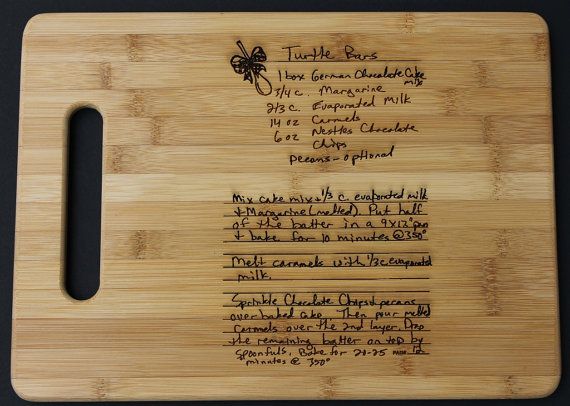 Turtle Bars
1 box German Chocolate Cake
mix
3/4 c. Margarine
2/3 c. Evaporated milk
14 oz Carmels
6 oz Nestles Chocolate
Chips
pecans-optional
Mix cake mix + 1/3 c. evaporated milk
+ Margarine (melted). Put half
of the batter in a 9x12" pan
+ bake for 10 minutes @ 350°
Melt caramels with 1/3 c. evaporated
milk.
Sprinkle Chocolate Chips + pecans
over baked cake. Then pour melted
Carmels over the 2nd layer. Drop
the remaining batter on top by
spoonfuls. Bake for 20-25
minutes @ 350°